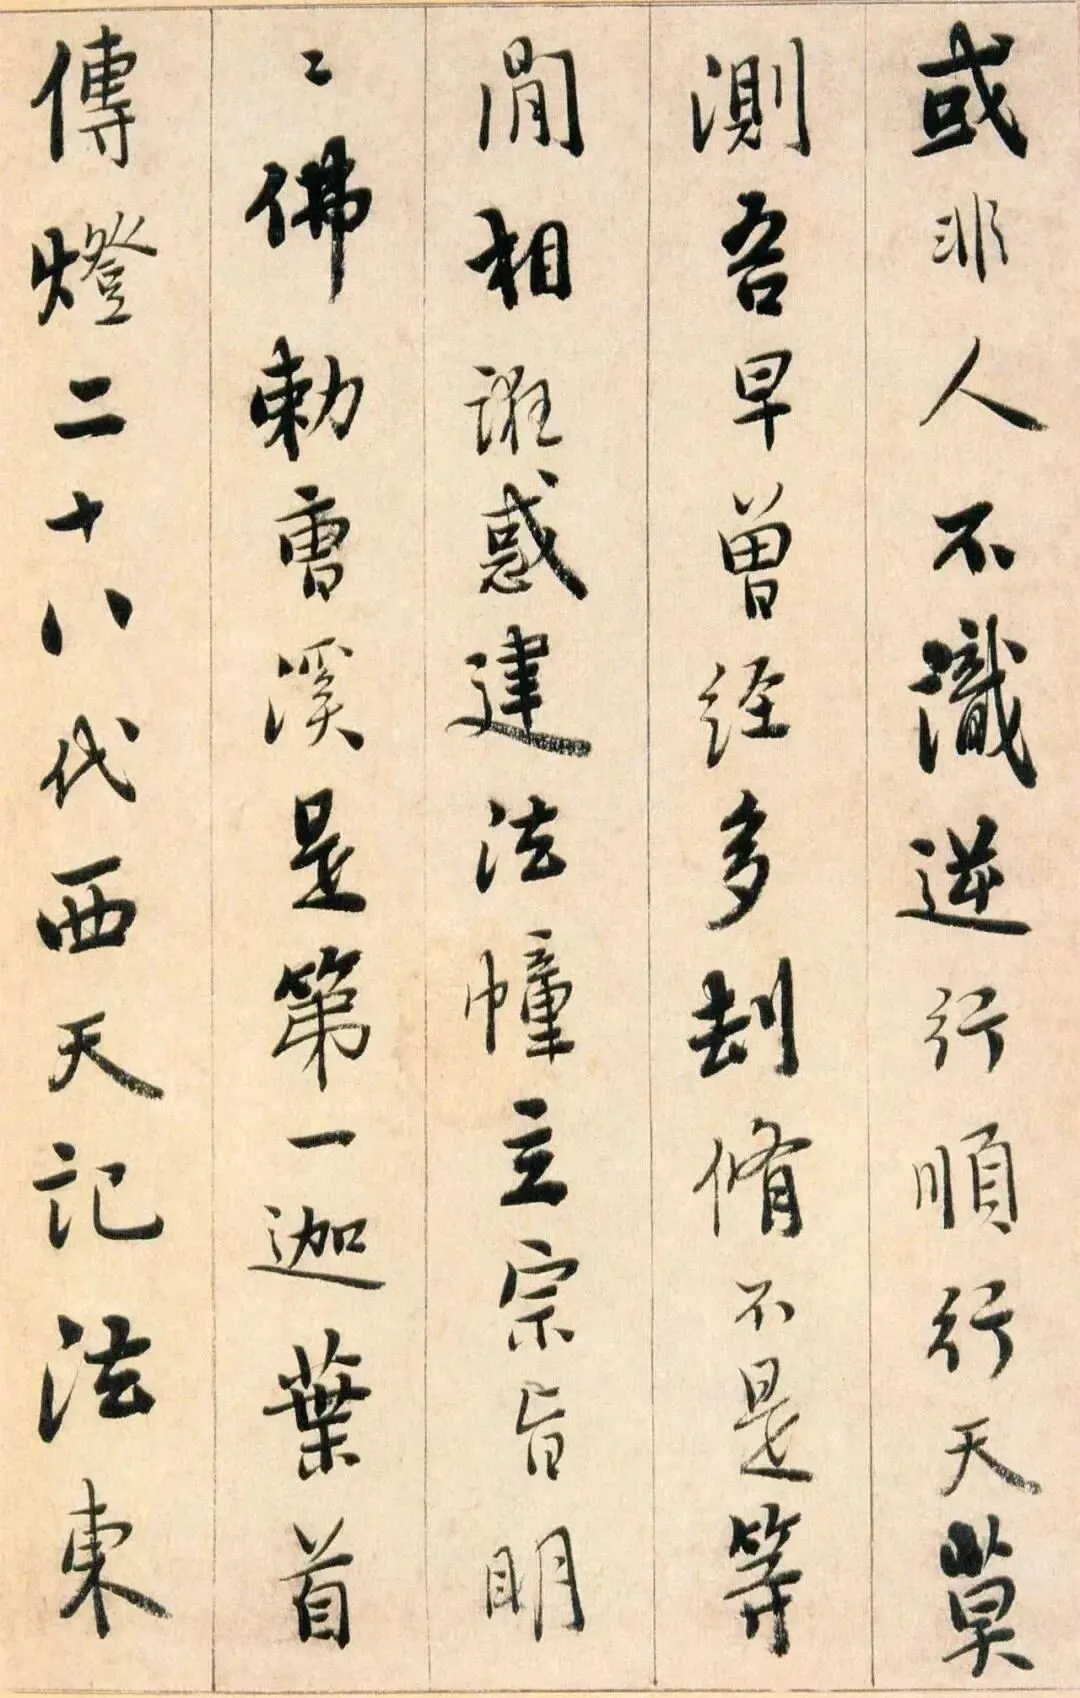 或非人不識逆行順行天莫
測吾早曾経多劫脩不是等
閒相誑惑建法幢立宗旨明
〻佛勅曹溪是第一迦葉首
傳燈二十八代西天記法東